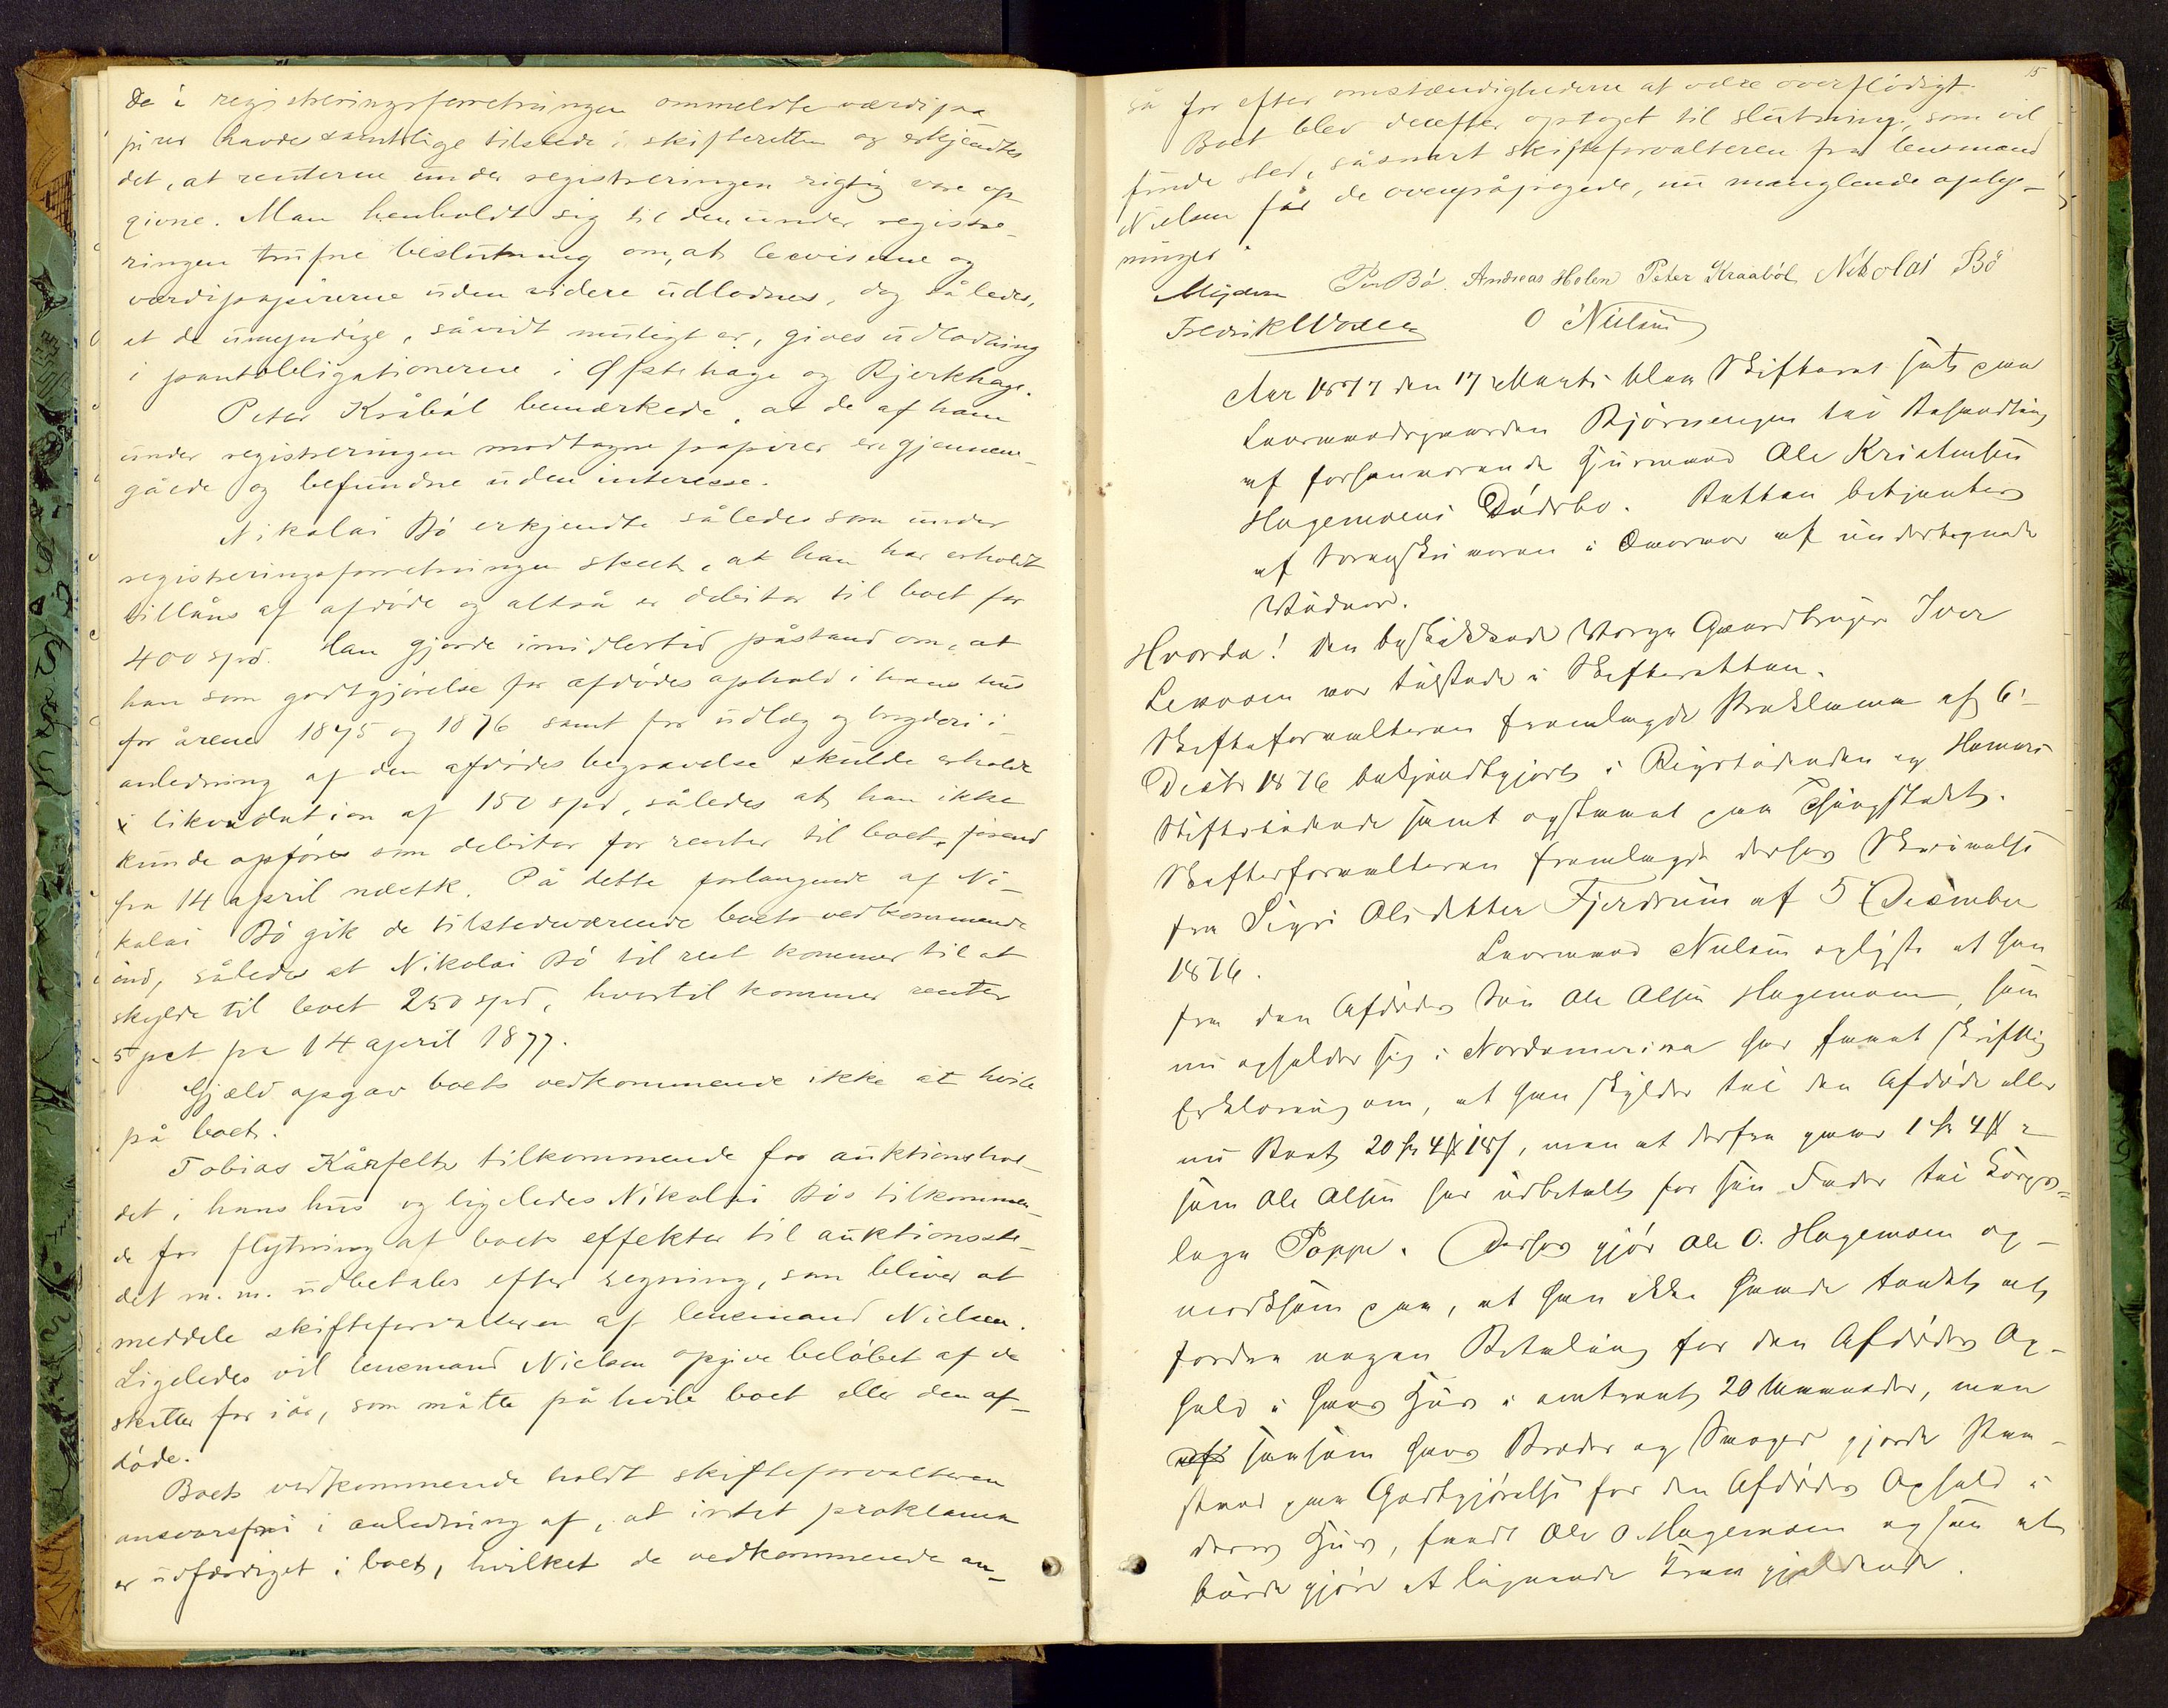 de i registreringsforretningen ommeldte værdipa
pirer havdes samtlige tilstede i skifteretten og erkjendtes
det, at renterne under registreringen rigtig vare op
givne. Man henholdt sig til den under registre-
ringen trufne beslutning om, at beviserne og
værdipapirerne uden videre udlodnes, dog således,
at de umyndige, såvidt muligt er, gives udlodning
i pantobligationerne i Øfstehage og Bjerkhage.
Peter Kråból bemærkede, at de af ham
under registreringen modtagne papirer ere gjennem-
gåede og befundne uden interesse.
Nikolai Bó erkjendte således som under
registreringsforretningen skeet, at han har erholdt
tillåns af afdóde og altså er debitor til boet for
400 spd. Han gjorde imidlertid påstand om, at
han som godtgjórelse for afdódes ophold i hans hus
for årene 1875 og 1876 samt for udlæg og bryderi i
anledning af den afdódes begravelse skulde erholde
i likvidation af 150 spd, således at han ikke
kunde opfóres som debitor for renter til boet fórend
fra 14 april næstk. På dette forlangende af Ni-
kolai Bó gik de tilstedeværende boets vedkommende
ind, således at Nikolai Bó til rest kommer til at
skylde til boet 250 spd, hvortil kommer renter
5 pct fra 14 april 1877.
Gjæld opgav boets vedkommende ikke at hvile
på boet.
Tobias Kårfelts tilkommende for auktionshol-
det i hans hus og ligeledes Nikolai Bós tilkommen-
de for flytning af boets effekter til auktionsste-
det m. m. udbetales efter regning, som bliver at
meddele skifteforvalteren af lensmand Nielsen.
Ligeledes vil lensmand Nielsen opgive belóbet af de
skatter for iår, som måtte påhvile boet eller den af-
dóde.
Boets vedkommende holdt skifteforvalteren
ansvarsfri i anledning af, at intet proklama
er udfærdiget i boet, hvilket de vedkommende an-
15
så for efter omstændighederne at være overflódigt.
Boet blev derefter optaget til slutning, som vil
finde sted, såsnart skifteforvalteren fra lensmand
Nielsen får de ovenpåpegede, nu manglende oplys-
ninger.
Per Bó. Andreas Holen Peter Kraaból Nikolai Bó
Fredrik O Nielsen
Aar 1877 den 17 Marts blev Skifteret sat paa
Lensmandsgaarden Bjórnengen til Behandling
af forhenværende Huusmand Ole Kristensen
Hagemoens Dódsbo. Retten betjentes
af Sorenskriveren i Overvær af undertegnede
Vidner.
Hvorda! Den beskikkede Værge Gaardbruger Iver
var tilstede i Skifteretten.
Skifteforvalteren fremlagde Proklama af 6'
Decbr 1876 bekjendtgjort i Rigstidenden og Hamars
Stiftstidende samt opslaaet paa Thingstedet.
Skifteforvalteren fremlagde derhos Skrivelse
fra Sigri Olsdatter Fjerdrum af 5 December
1876. Lensmand Nielsen oplyste at han
fra den Afdódes Són Ole Olsen Hagemoen, som
nu opholder sig i Nordamerika har faaet skriftlig
Erklæring om, at han skylder til den Afdóde eller
nu Boet 20 Spd 4 18 s, men at derfra gaaer 1 Spd 4
som Ole Olsen har udbetalt for sin Fader til Corps-
læge Poppe. Derhos gjór Ole O. Hagemoen op-
mærksom paa, at han ikke havde tænkt at
fordre nogen Betaling for den Afdódes Op-
hold i hans Huus i omtrent 20 Maaneder, men
saasom hans Bróder og Svoger gjorde Paa-
stand paa Godtgjórelse for den Afdódes Ophold i
deres Huus, fandt Ole O. Hagemoen ogsaa at
burde gjóre et lignende Krav gjældende.